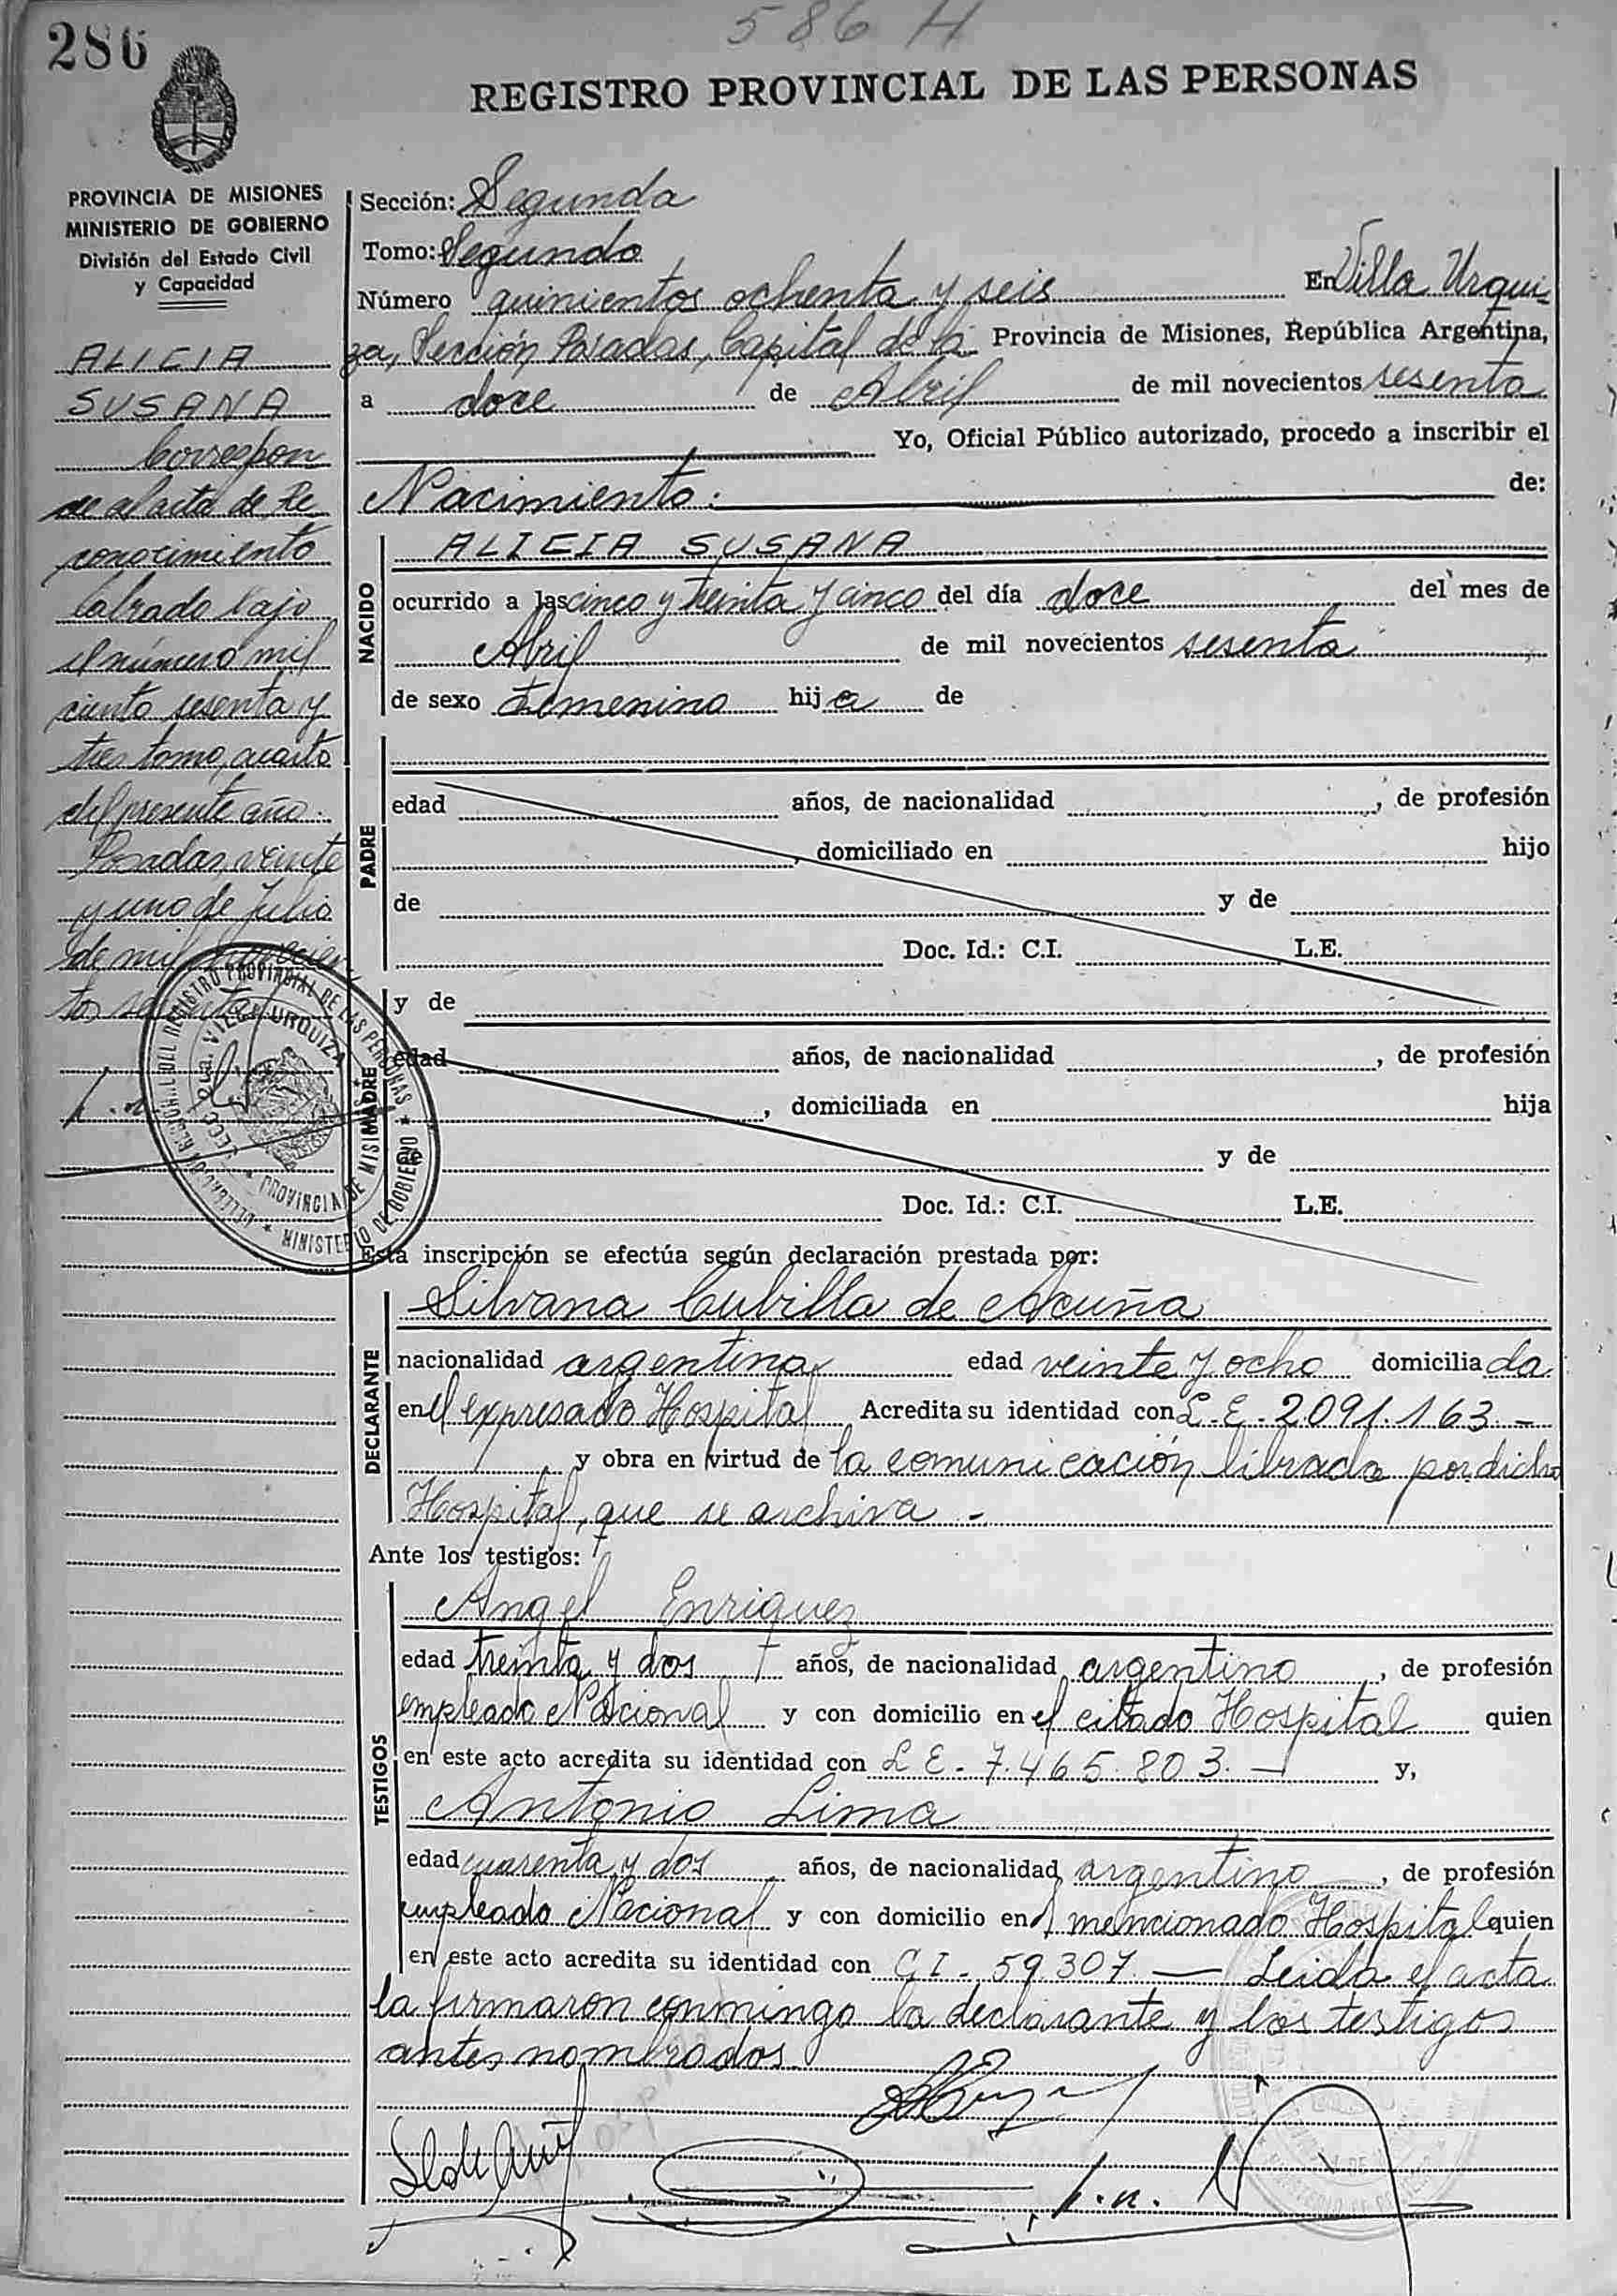 286
586 H
REGISTRO PROVINCIAL DE LAS PERSONAS
PROVINCIA DE MISIONES
MINISTERIO DE GOBIERNO
División del Estado Civil
y Capacidad
ALICIA
SUSANA
Correspon
de al acta de Re
conocimiento
labrado bajo
el número mil
ciento sesenta y
tres tomo cuarto
del presente año.
Posadas, veinte
y uno de Julio
de mil novecien
tos sesenta
Sección: Segunda
Tomo: Segundo
Número quinientos ochenta y seis En Villa Urqui-
za, Sección Posadas, Capital de la Provincia de Misiones, República Argentina,
a doce de Abril de mil novecientos sesenta
Yo, Oficial Público autorizado, procedo a inscribir el
Nacimiento: de:
NACIDO
ALICIA SUSANA
ocurrido a las cinco y treinta y cinco del día doce del mes de
Abril de mil novecientos sesenta
de sexo femenino hija de
PADRE
edad años, de nacionalidad , de profesión
, domiciliado en hijo
de y de
Doc. Id.: C.I. L.E.
MADRE
y de
edad años, de nacionalidad , de profesión
, domiciliada en hija
de y de
Doc. Id.: C.I. L.E.
DEL REGISTRO PROVINCIAL DE LAS PERSONAS
MINISTERIO DE GOBIERNO
SECC. 2da. VILLA URQUIZA
PROVINCIA DE MISIONES
Esta inscripción se efectúa según declaración prestada por:
DECLARANTE
Silvana Cubilla de Acuña
nacionalidad argentina edad veinte y ocho domiciliada
en el expresado Hospital Acredita su identidad con L.E. 2.091.163 -
y obra en virtud de la comunicación librada por dicho
Hospital, que se archiva -
Ante los testigos:
TESTIGOS
Angel Enriquez
edad treinta y dos años, de nacionalidad argentino, de profesión
empleado Nacional y con domicilio en el citado Hospital quien
en este acto acredita su identidad con L E - 7.465.803. — y,
Antonio Lima
edad cuarenta y dos años, de nacionalidad argentino, de profesión
empleado Nacional y con domicilio en el mencionado Hospital quien
en este acto acredita su identidad con C I - 59.307 — Leida el acta
la firmaron conmingo la declarante y los testigos
antes nombrados.